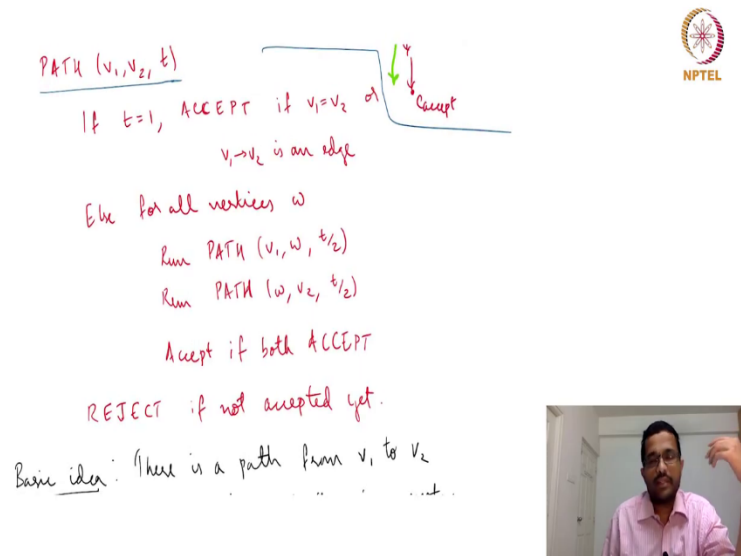 PATH (v₁, v₂, t)
If t=1, ACCEPT if v₁=v₂ or
v₁→v₂ is an edge
Else for all vertices w
Run PATH (v₁, w, t/2)
Run PATH (w, v₂, t/2)
Accept if both ACCEPT
REJECT if not accepted yet.
Basic idea: There is a path from v₁ to v₂
Caccept
NPTEL